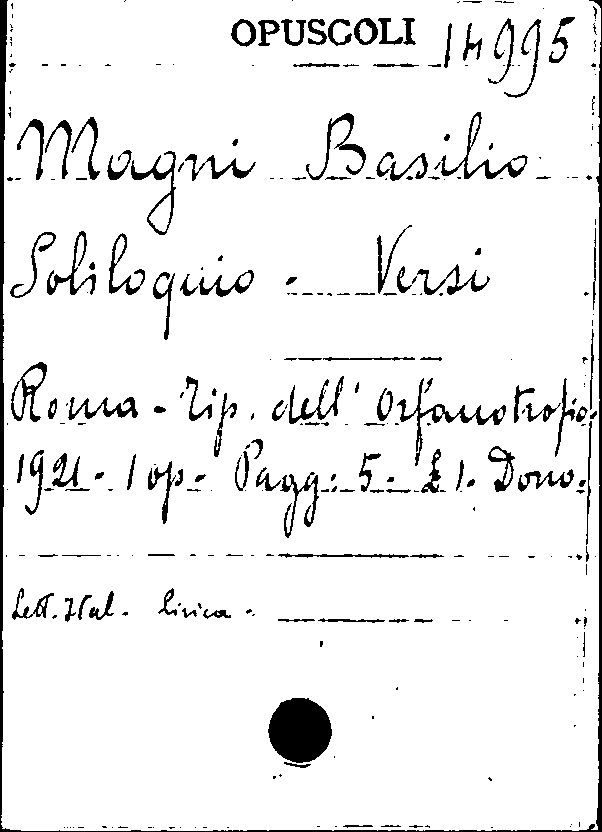 OPUSCOLI 14995
Magni Basilio
Soliloquio - Versi
Roma - Tip. dell' Orfanotrofio.
1921 - 1 op - Pagg: 5 - £ 1. Dono.
Lett. Ital. lirica -